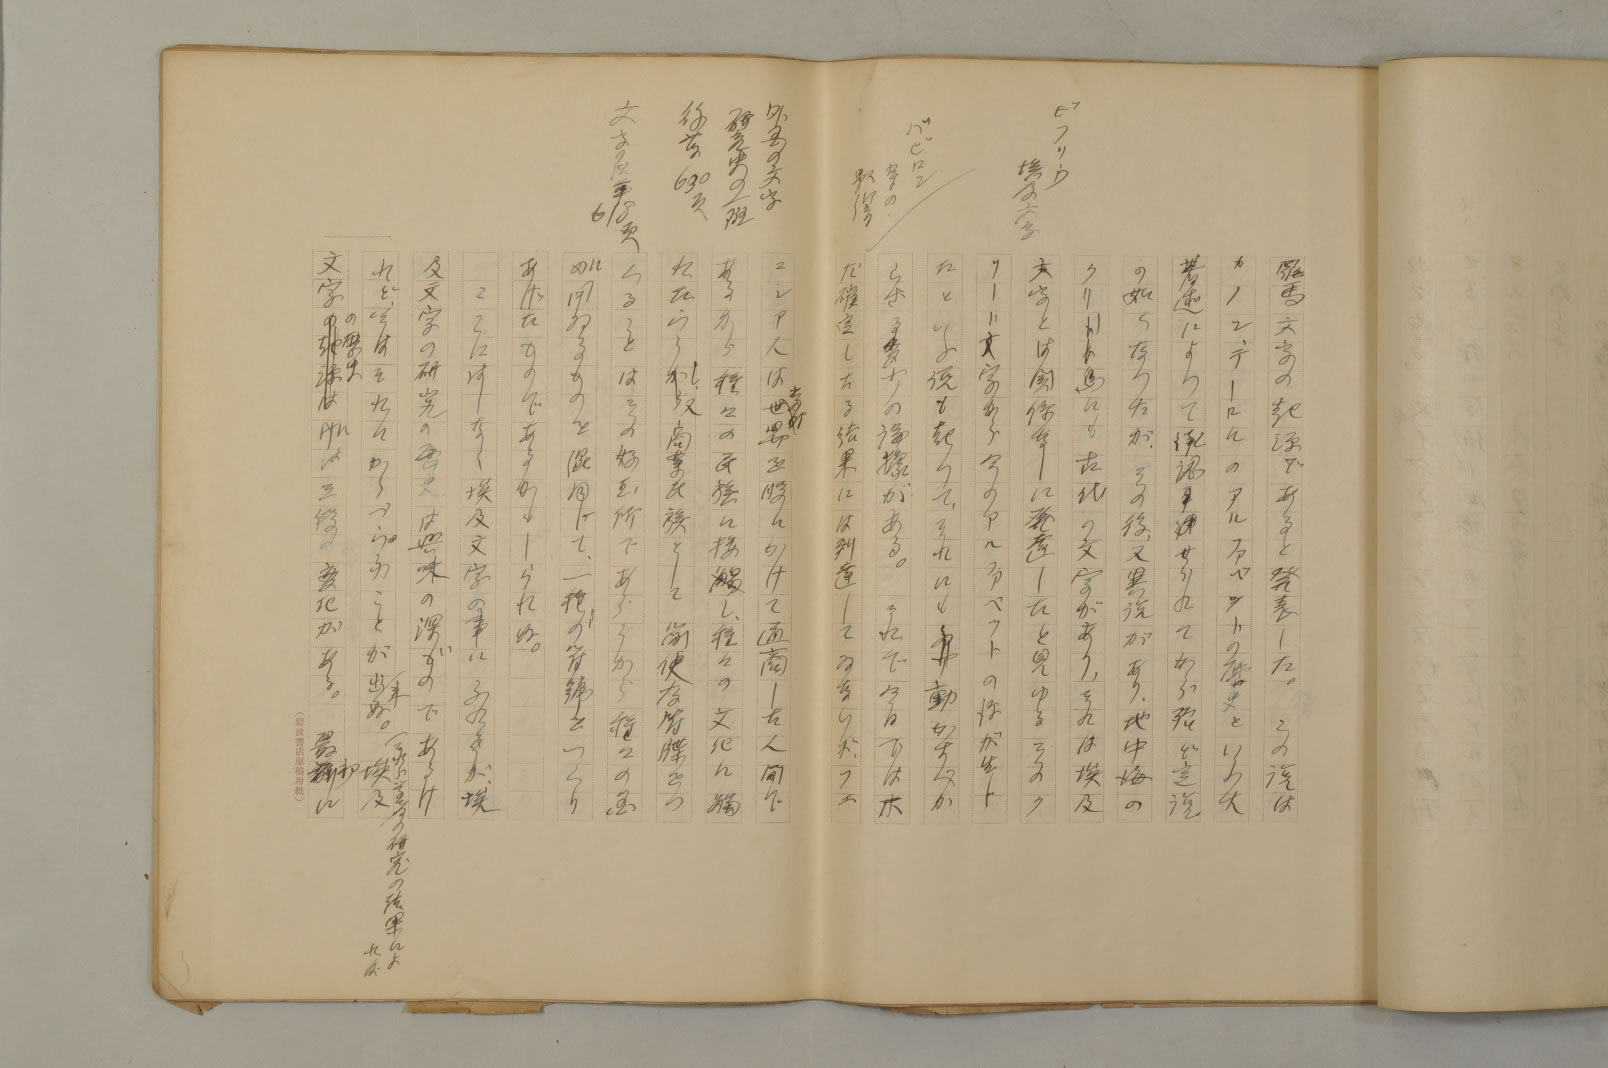 羅馬文字の起源であると発表した。この説は
カノン、テーロにのアルファベットの歴史といふ大
著述によつて確認せられてから殆ど定説
の如くなつたが、その後、又異説があり、地中海の
クリート島にも古代の文字があり、それは埃及
文字とは関係なしに発達したと見ゆるそのク
リート文字から今のアルファベットの源が生じ
たといふ説も起つて、それにも動かすべか
らざる論拠がある。それで今日ではま
だ確定したる結果には到達してゐないが、フェ
ニシア人は当時世界を股にかけて通商した人間で
あるから種々の民族に接触し、種々の文化に触
れたらうし、又商業民族として簡便な符牒をつ
くることはその好む所であらうから種々の国
に関するものを混用して、一種の符号をつくり
あげたものであるかもしられぬ。
ここにはしなく埃及文字の事にふれたが、埃
及文字の研究の歴史は興味の深いものであるけ
れど、今はそれにかかづらふことが出来ぬ。埃及
文字の歴史には三段の変化がある。最初に
ビブリウ
埃及文字
バビロン
文字の
外国の文字
研究史の一斑
630頁
頁
学者の研究の結果によ
れば
(岩波書店原稿用紙)